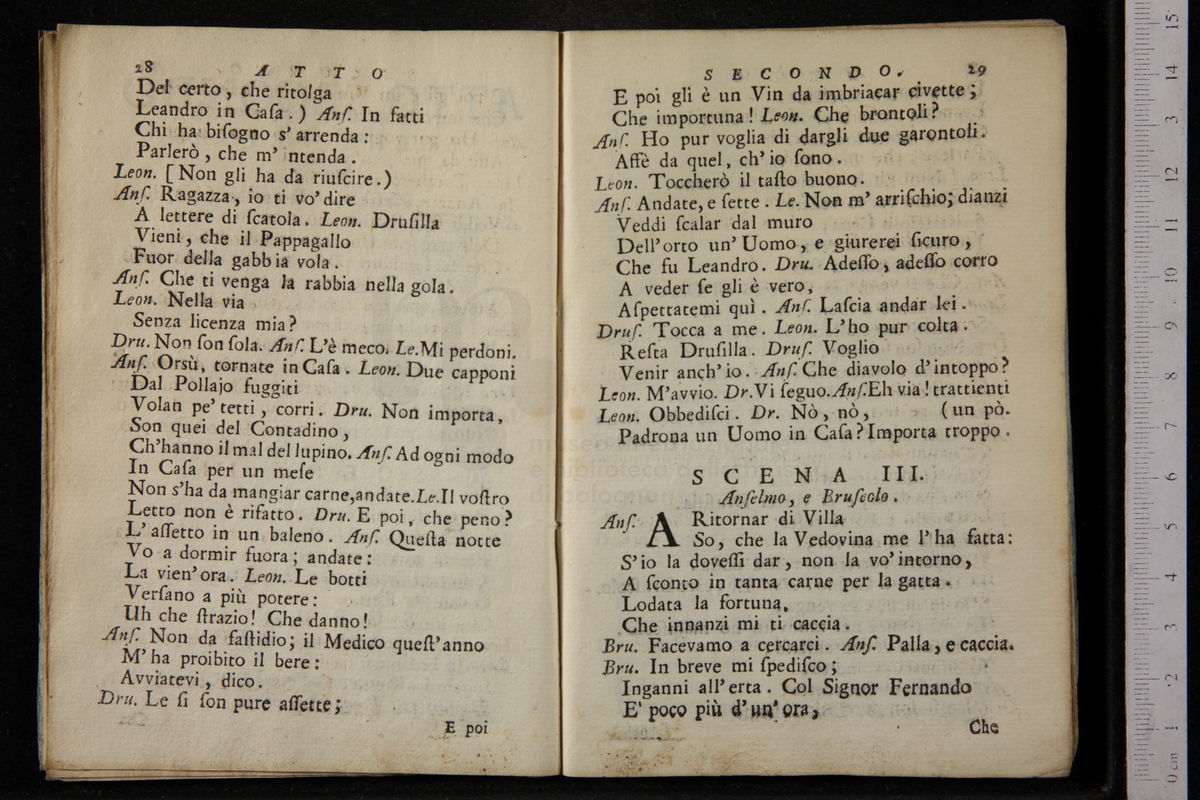 28 A T T O
Del certo, che ritolga
Leandro in Caſa.) Anſ. In fatti
Chi ha biſogno s'arrenda:
Parlerò, che m' ntenda.
Leon. [Non gli ha da riuſcire.)
Anſ. Ragazza, io ti vo' dire
A lettere di ſcatola. Leon. Druſilla
Vieni, che il Pappagallo
Fuor della gabbia vola.
Anſ. Che ti venga la rabbia nella gola.
Leon. Nella via
Senza licenza mia?
Dru. Non ſon ſola. Anſ. L'è meco. Le. Mi perdoni.
Anſ. Orsù, tornate in Caſa. Leon. Due capponi
Dal Pollajo fuggiti
Volan pe' tetti, corri. Dru. Non importa,
Son quei del Contadino,
Ch'hanno il mal del lupino. Anſ. Ad ogni modo
In Caſa per un meſe
Non s'ha da mangiar carne, andate. Le. Il voſtro
Letto non è rifatto. Dru. E poi, che peno?
L'aſſetto in un baleno. Anſ. Queſta notte
Vo a dormir fuora; andate:
La vien'ora. Leon. Le botti
Verſano a più potere:
Uh che ſtrazio! Che danno!
Anſ. Non da faſtidio; il Medico queſt'anno
M'ha proibito il bere:
Avviatevi, dico.
Dru. Le ſi ſon pure aſſette;
E poi
S E C O N D O. 29
E poi gli è un Vin da imbriacar civette;
Che importuna! Leon. Che brontoli?
Anſ. Ho pur voglia di dargli due garontoli.
Affè da quel, ch'io ſono.
Leon. Toccherò il taſto buono.
Anſ. Andate, e ſette. Le. Non m' arriſchio; dianzi
Veddi ſcalar dal muro
Dell'orto un'Uomo, e giurerei ſicuro,
Che fu Leandro. Dru. Adeſſo, adeſſo corro
A veder ſe gli è vero,
Aſpettatemi quì. Anſ. Laſcia andar lei.
Druſ. Tocca a me. Leon. L'ho pur colta.
Reſta Druſilla. Druſ. Voglio
Venir anch'io. Anſ. Che diavolo d'intoppo?
Leon. M'avvio. Dr. Vi ſeguo. Anſ. Eh via! trattienti
Leon. Obbediſci. Dr. Nò, nò, (un pò.
Padrona un Uomo in Caſa? Importa troppo.
S C E N A III.
Anſelmo, e Bruſcolo.
Anſ. A Ritornar di Villa
So, che la Vedovina me l'ha fatta:
S'io la doveſſi dar, non la vo' intorno,
A ſconto in tanta carne per la gatta.
Lodata la fortuna,
Che innanzi mi ti caccia.
Bru. Facevamo a cercarci. Anſ. Palla, e caccia.
Bru. In breve mi ſpediſco;
Inganni all'erta. Col Signor Fernando
E' poco più d'un' ora,
Che